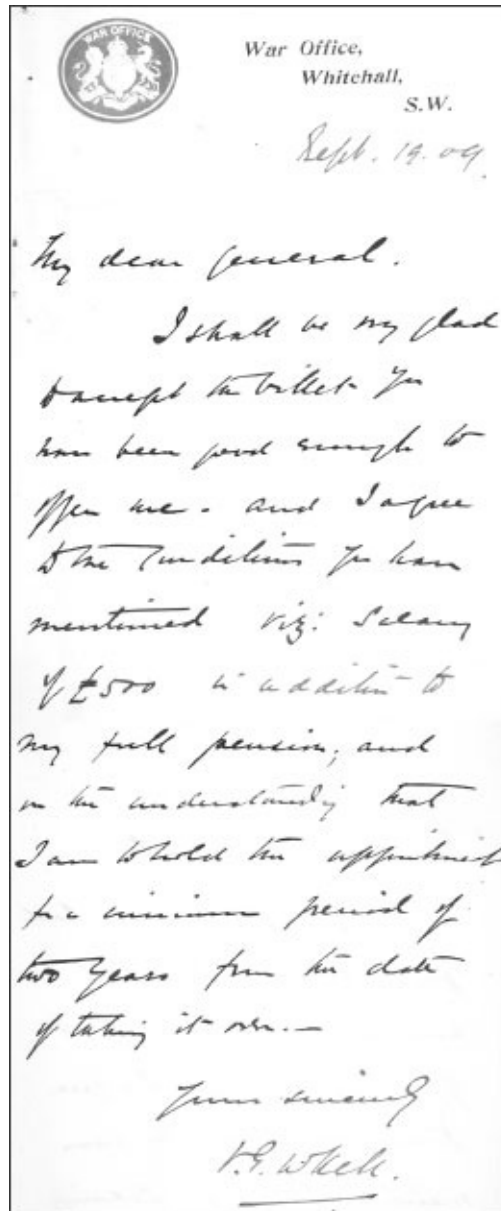 WAR OFFICE
War Office,
Whitehall,
S.W.
Sept. 19. 09.
My dear General.
I shall be very glad
to accept the billet you
have been good enough to
offer me. and I agree
to the conditions you have
mentioned viz: Salary
of £500 in addition to
my full pension; and
on the understanding that
I am to hold the appointment
for a minimum period of
two years from the date
of taking it over.—
Yours sincerely
V.G.W. Kell.